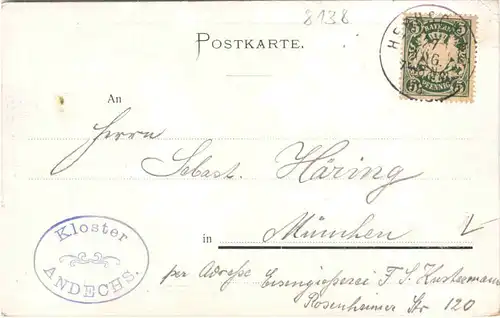 8138
POSTKARTE.
BAYERN
5 5
PFENNIG
An
Herrn
Sebast. Häring
in München
Kloster
ANDECHS.
per Adresse Eisengießerei F. S. Kustermann
Rosenheimer Str 120